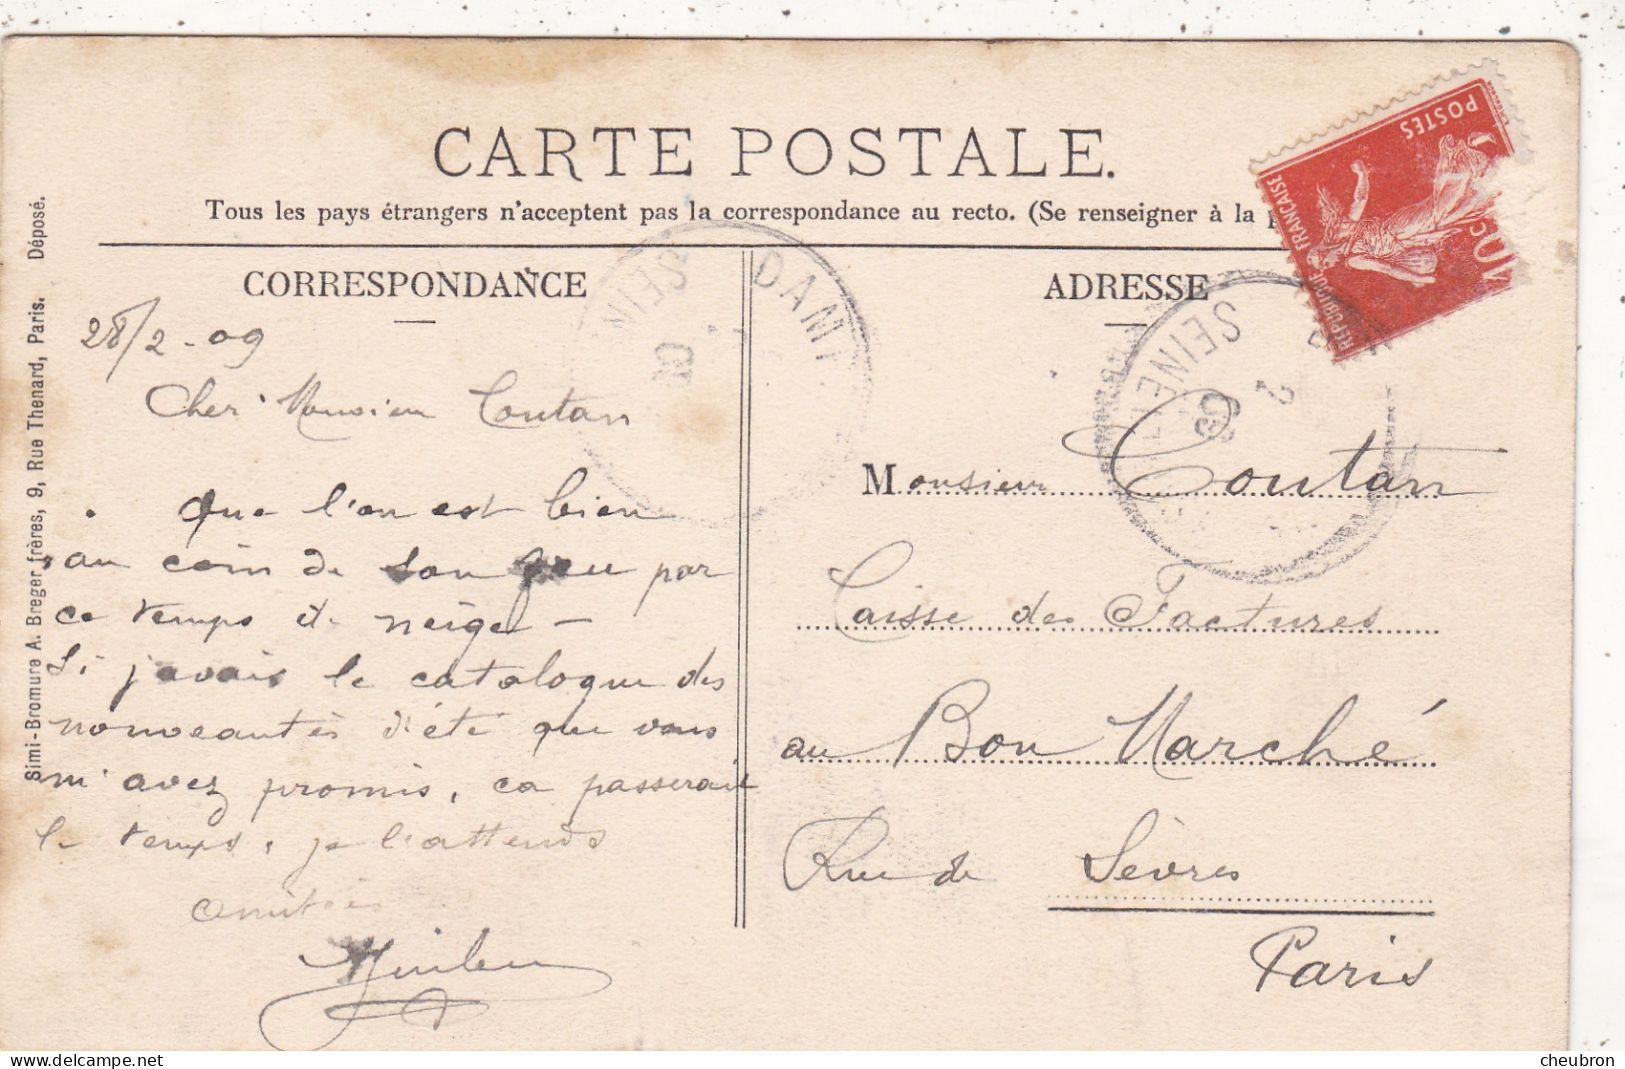 CARTE POSTALE.
Tous les pays étrangers n'acceptent pas la correspondance au recto. (Se renseigner à la p
CORRESPONDANCE
28/2-09
Cher Monsieur Coutan
Que l'on est bien
au coin de son feu par
ce temps de neige —
Si j'avais le catalogue des
nouveautés d'été que vous
m'avez promis, ca passerait
le temps, je l'attends
Amitiés
ADRESSE
Monsieur Coutan
Caisse des Factures
au Bon Marché
Rue de Sèvres
Paris
Simi-Bromure A. Breger frères, 9, Rue Thenard, Paris. Déposé.
REPUBLIQUE FRANÇAISE
POSTES
10c
DAM
SEIN
SEINE
2
09
cheubron